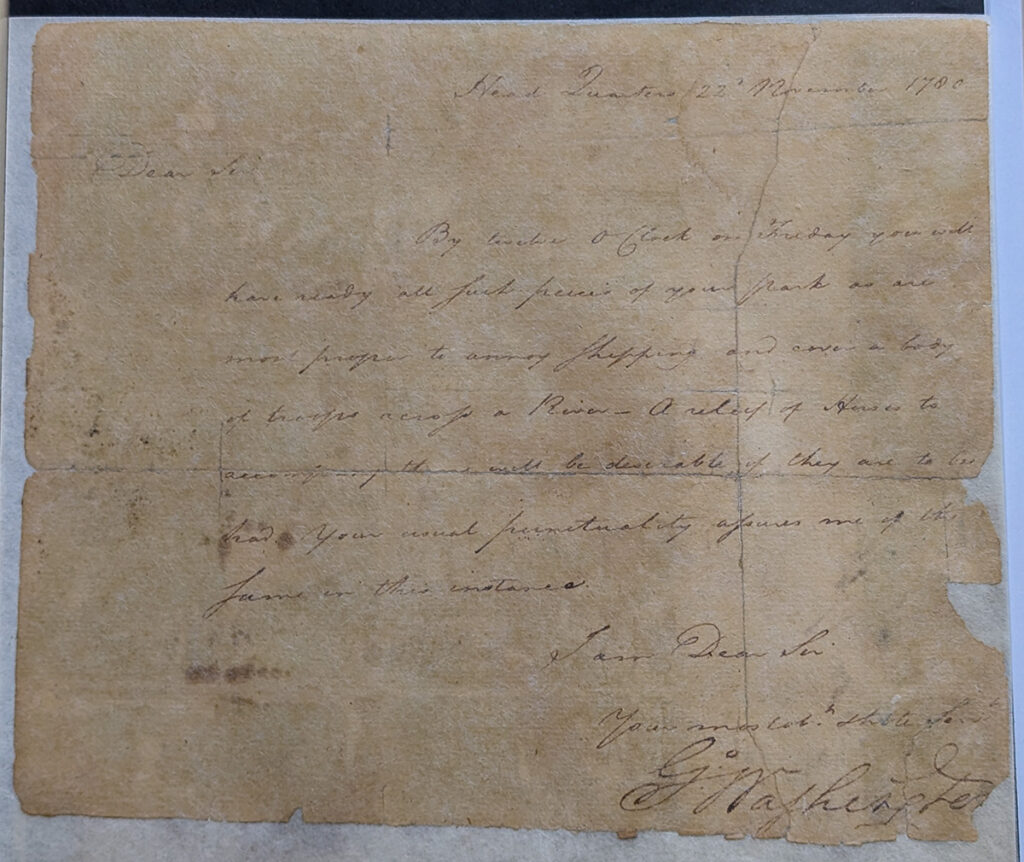 Head Quarters 22d November 1780
Dear Sir
By twelve O Clock on Friday you will
have ready all such peices of your park as are
most proper to annoy shipping and cover a body
of troops across a River – A relief of Horses to
accompany them will be desirable if they are to be
had. Your usual punctuality assures me of the
same in this instance.
I am Dear Sir
Your most obt. & hble Servt
Go. Washington